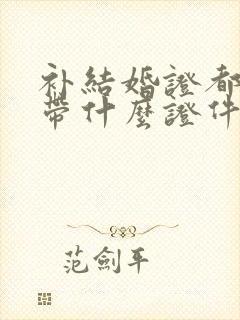 补結婚證都
帶什麼證件
范劍平